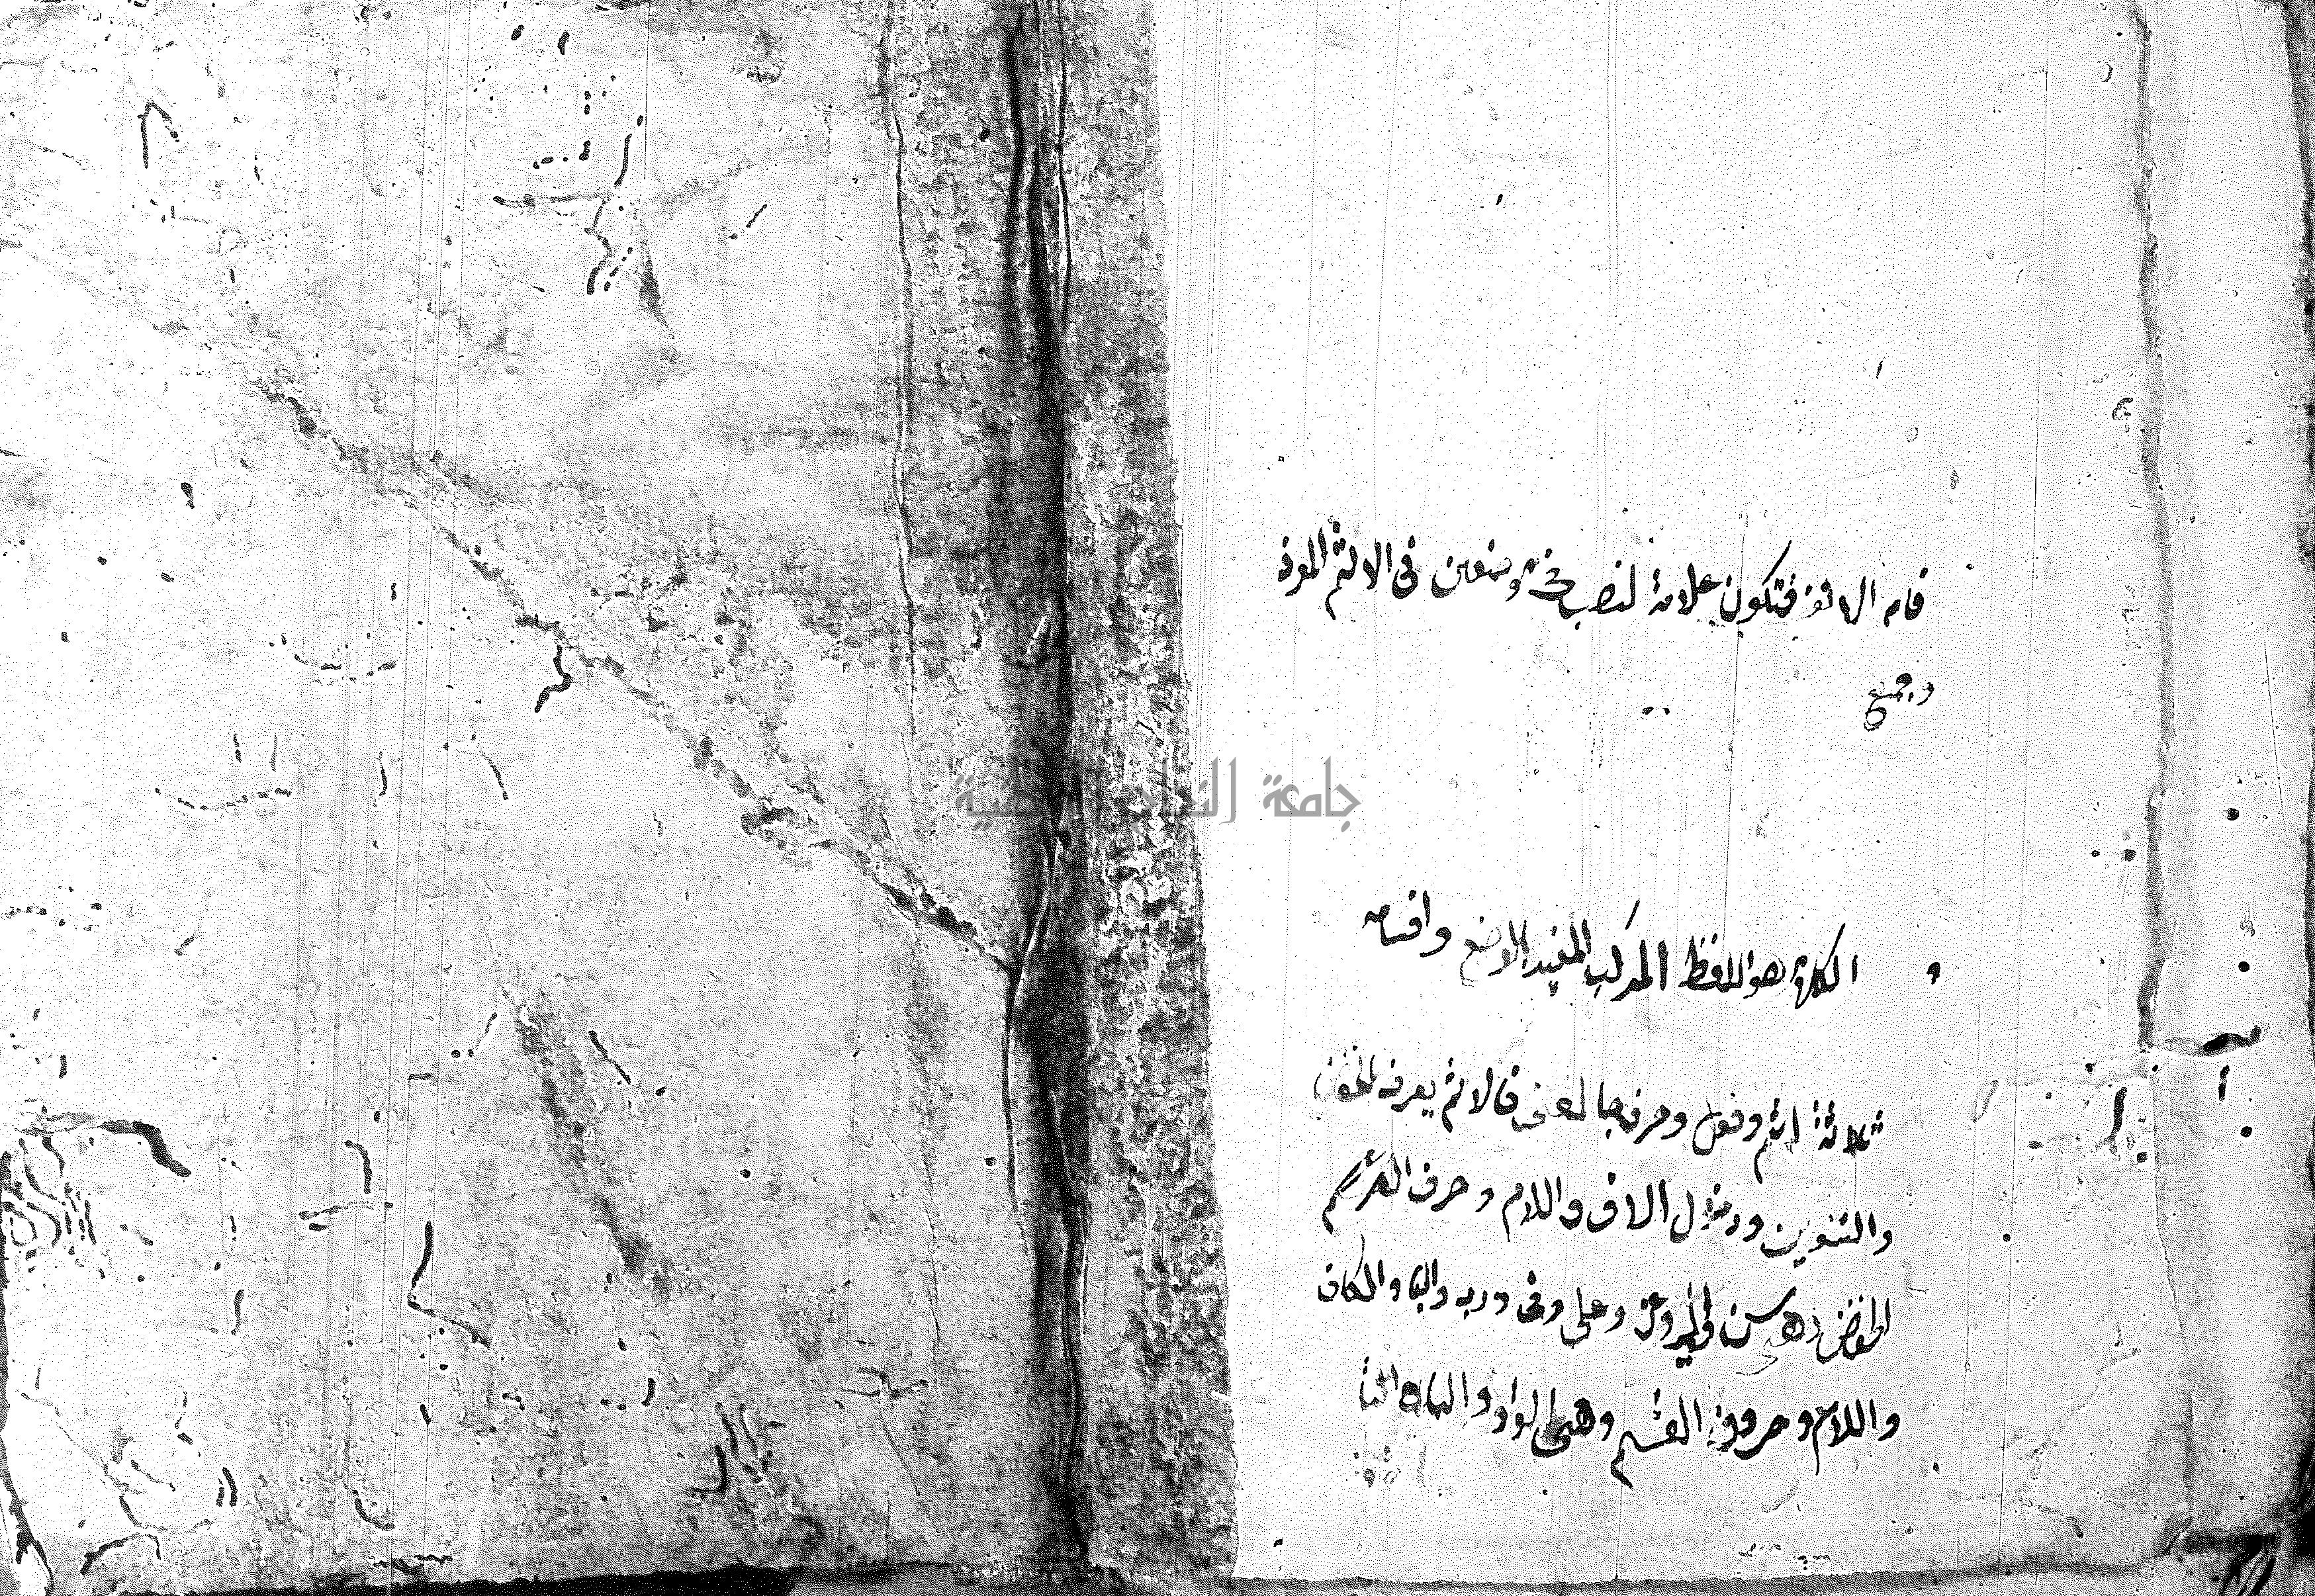 فاما الالف فتكون علامة لنصب في موضعين في الاسم المفرد
وجمع
جامعة النجاح الوطنية
الكلام هو اللفظ المركب المفيد بالوضع واقسامه
ثلاثة اسم وفعل وحرف جا لمعنى فالاسم يعرف بالخفض
والتنوين ودخول الالف واللام وحرف
الخفض وهي من والى وعن وعلى وفي ورب والبا والكاف
واللام وحروف القسم وهي الواو والباء والتا